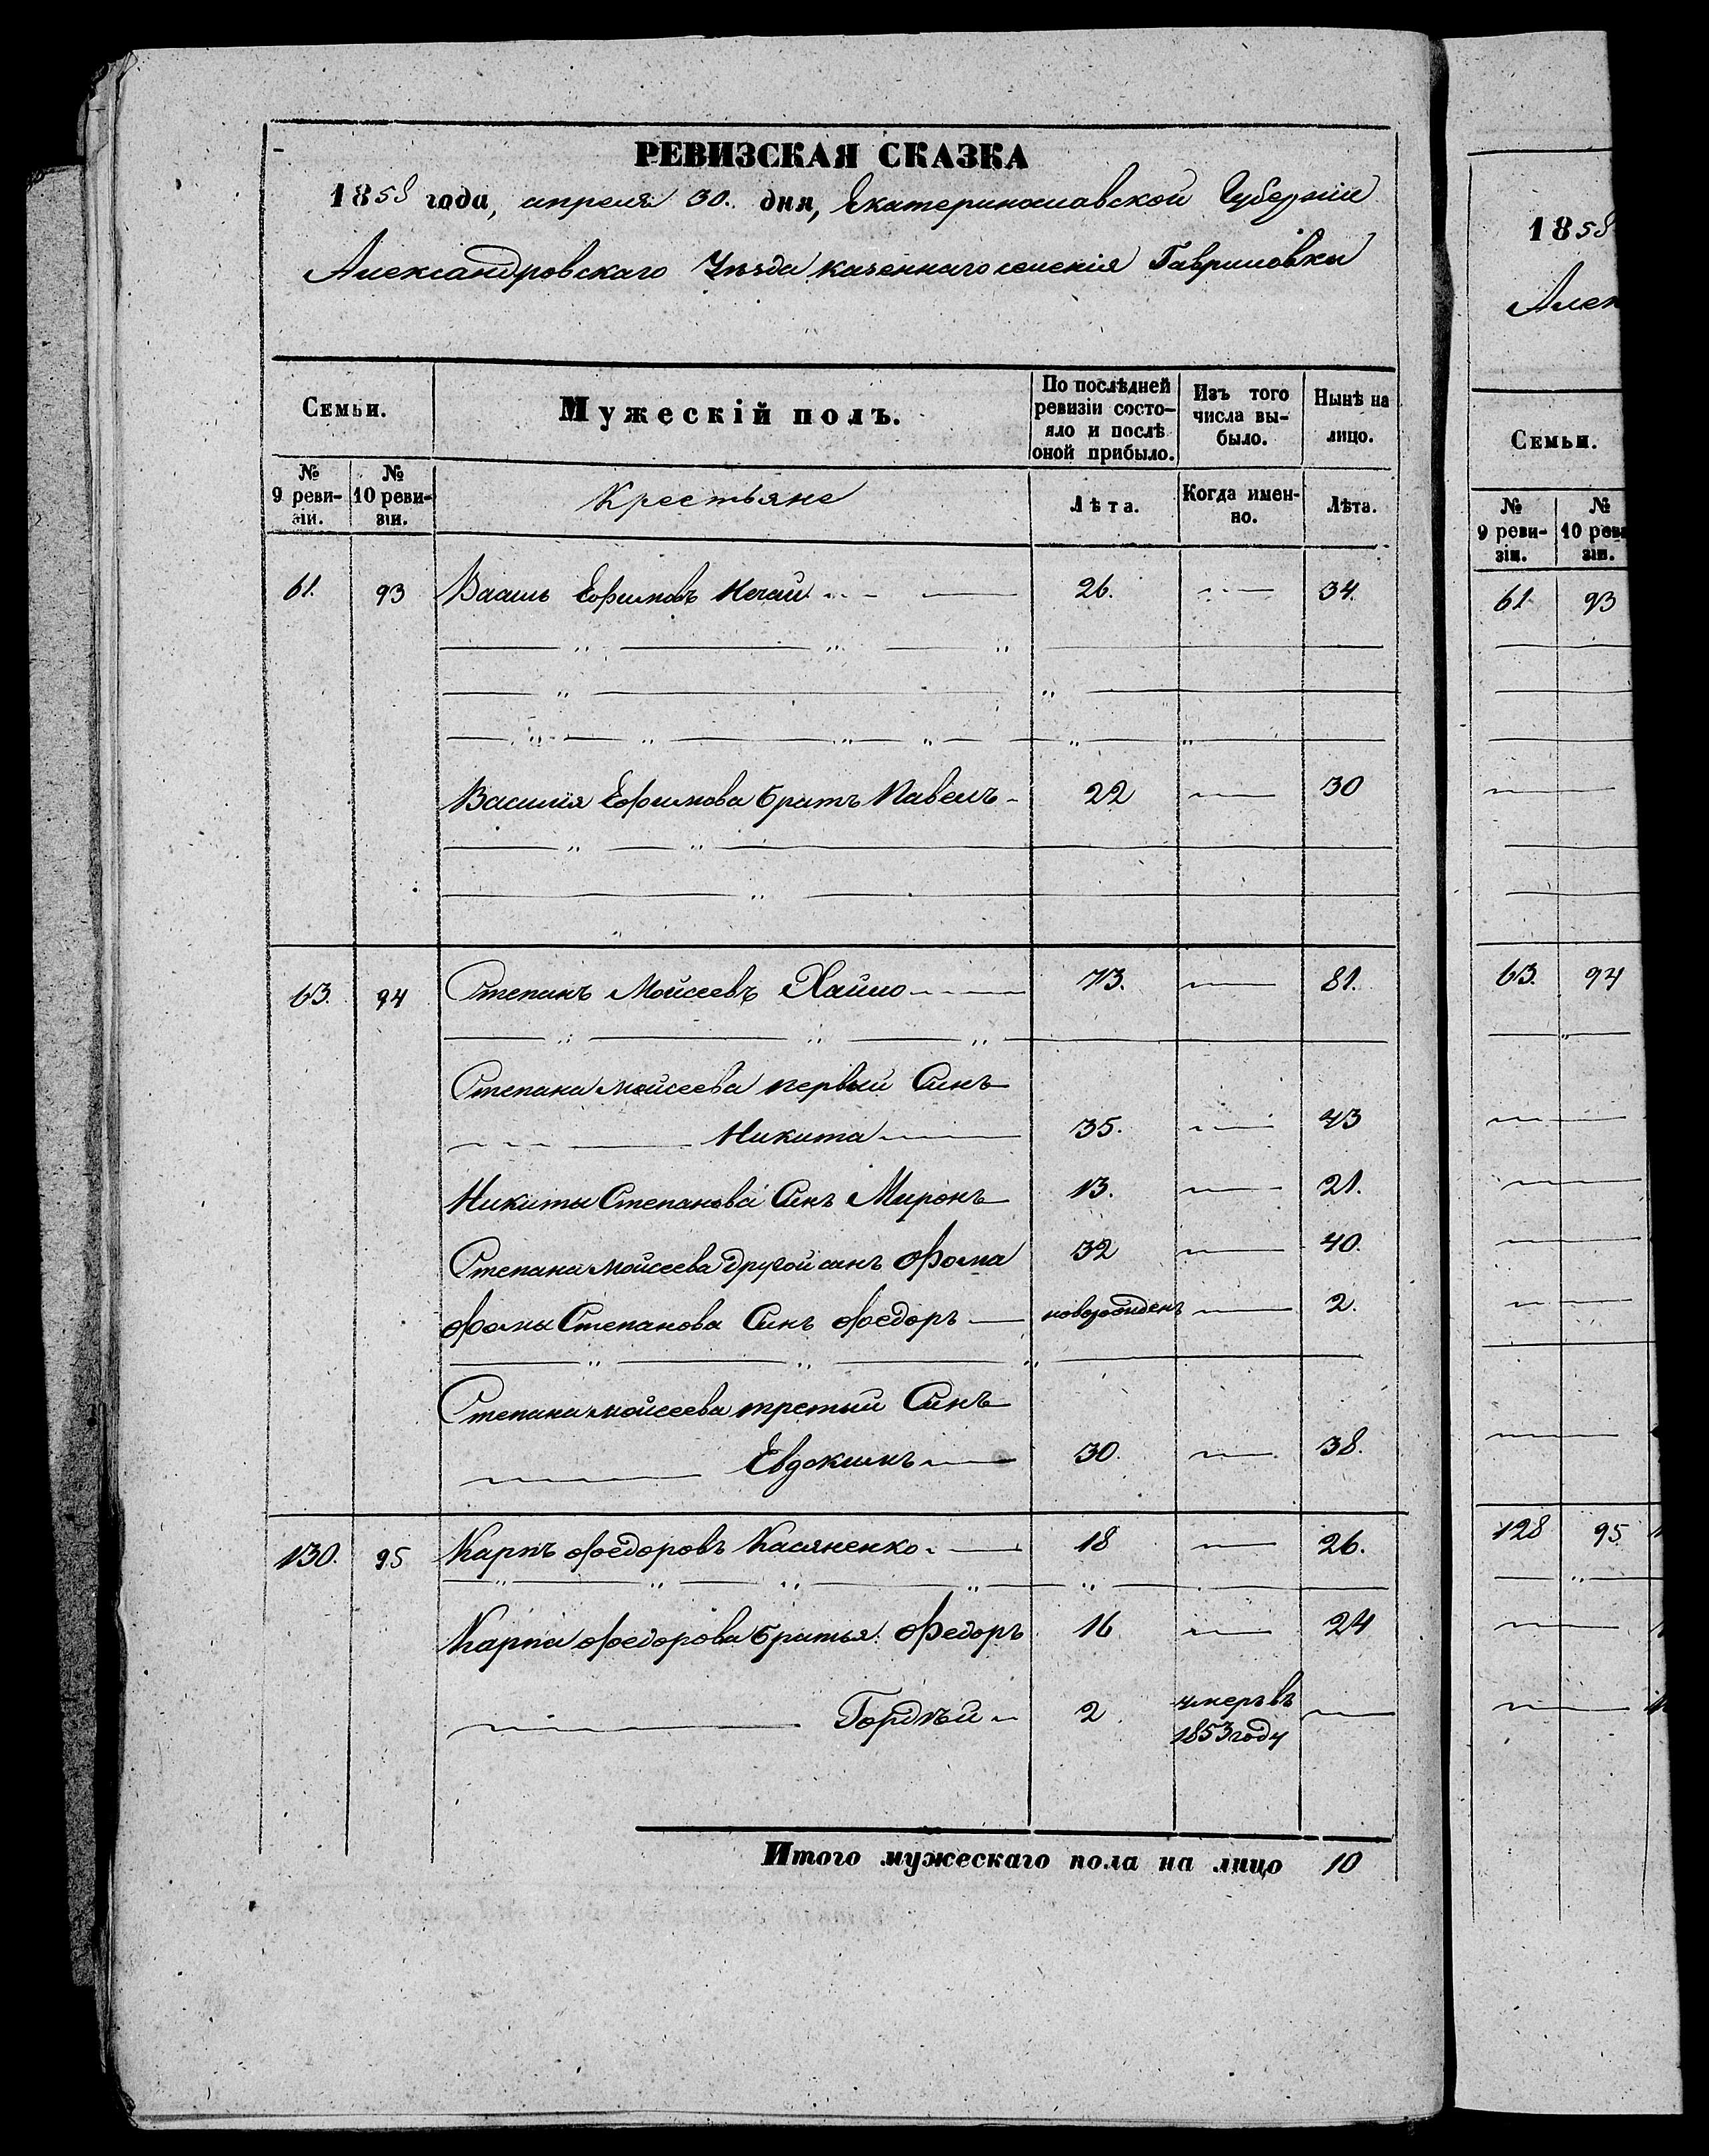 РЕВИЗСКАЯ СКАЗКА
1858 года, апреля 30. дня, Екатеринославской Губерніи
Александровскаго Уѣзда казеннаго селенія Гавриловки
Семьи.
Мужескій полъ.
По послѣдней ревизіи состо-
яло и послѣ
оной прибыло.
Изъ того
числа вы-
было.
Нынѣ на
лицо.
№
9 реви-
зіи.
№
10 реви-
зіи.
Крестьяне
Лѣта.
Когда имен-
но.
Лѣта.
61. 93 Василь Ефимовъ Нечай 26. 34.
Василия Ефимова братъ Павелъ 22 30
63. 94 Степанъ Мойсеевъ Хайло 73. 81.
Степана Мойсеева первый Синъ
Никита 35. 43
Никиты Степанова Синъ Миронъ 13. 21.
Степана Мойсеева другой синъ Фома 32 40.
Фомы Степанова Синъ Федоръ новорожденъ 2.
Степана Мойсеева третий Синъ
Евдокимъ 30. 38.
130. 95 Карпъ Федоровъ Касяненко. 18 26.
Карпа Федорова братья: Федоръ 16 24
Гордѣй 2 умеръ въ
1853 году
Итого мужескаго пола на лицо 10
1858
Алек
Семьи.
№
9 реви-
зіи.
№
10 реви
зіи.
61 93
63. 94
128 95